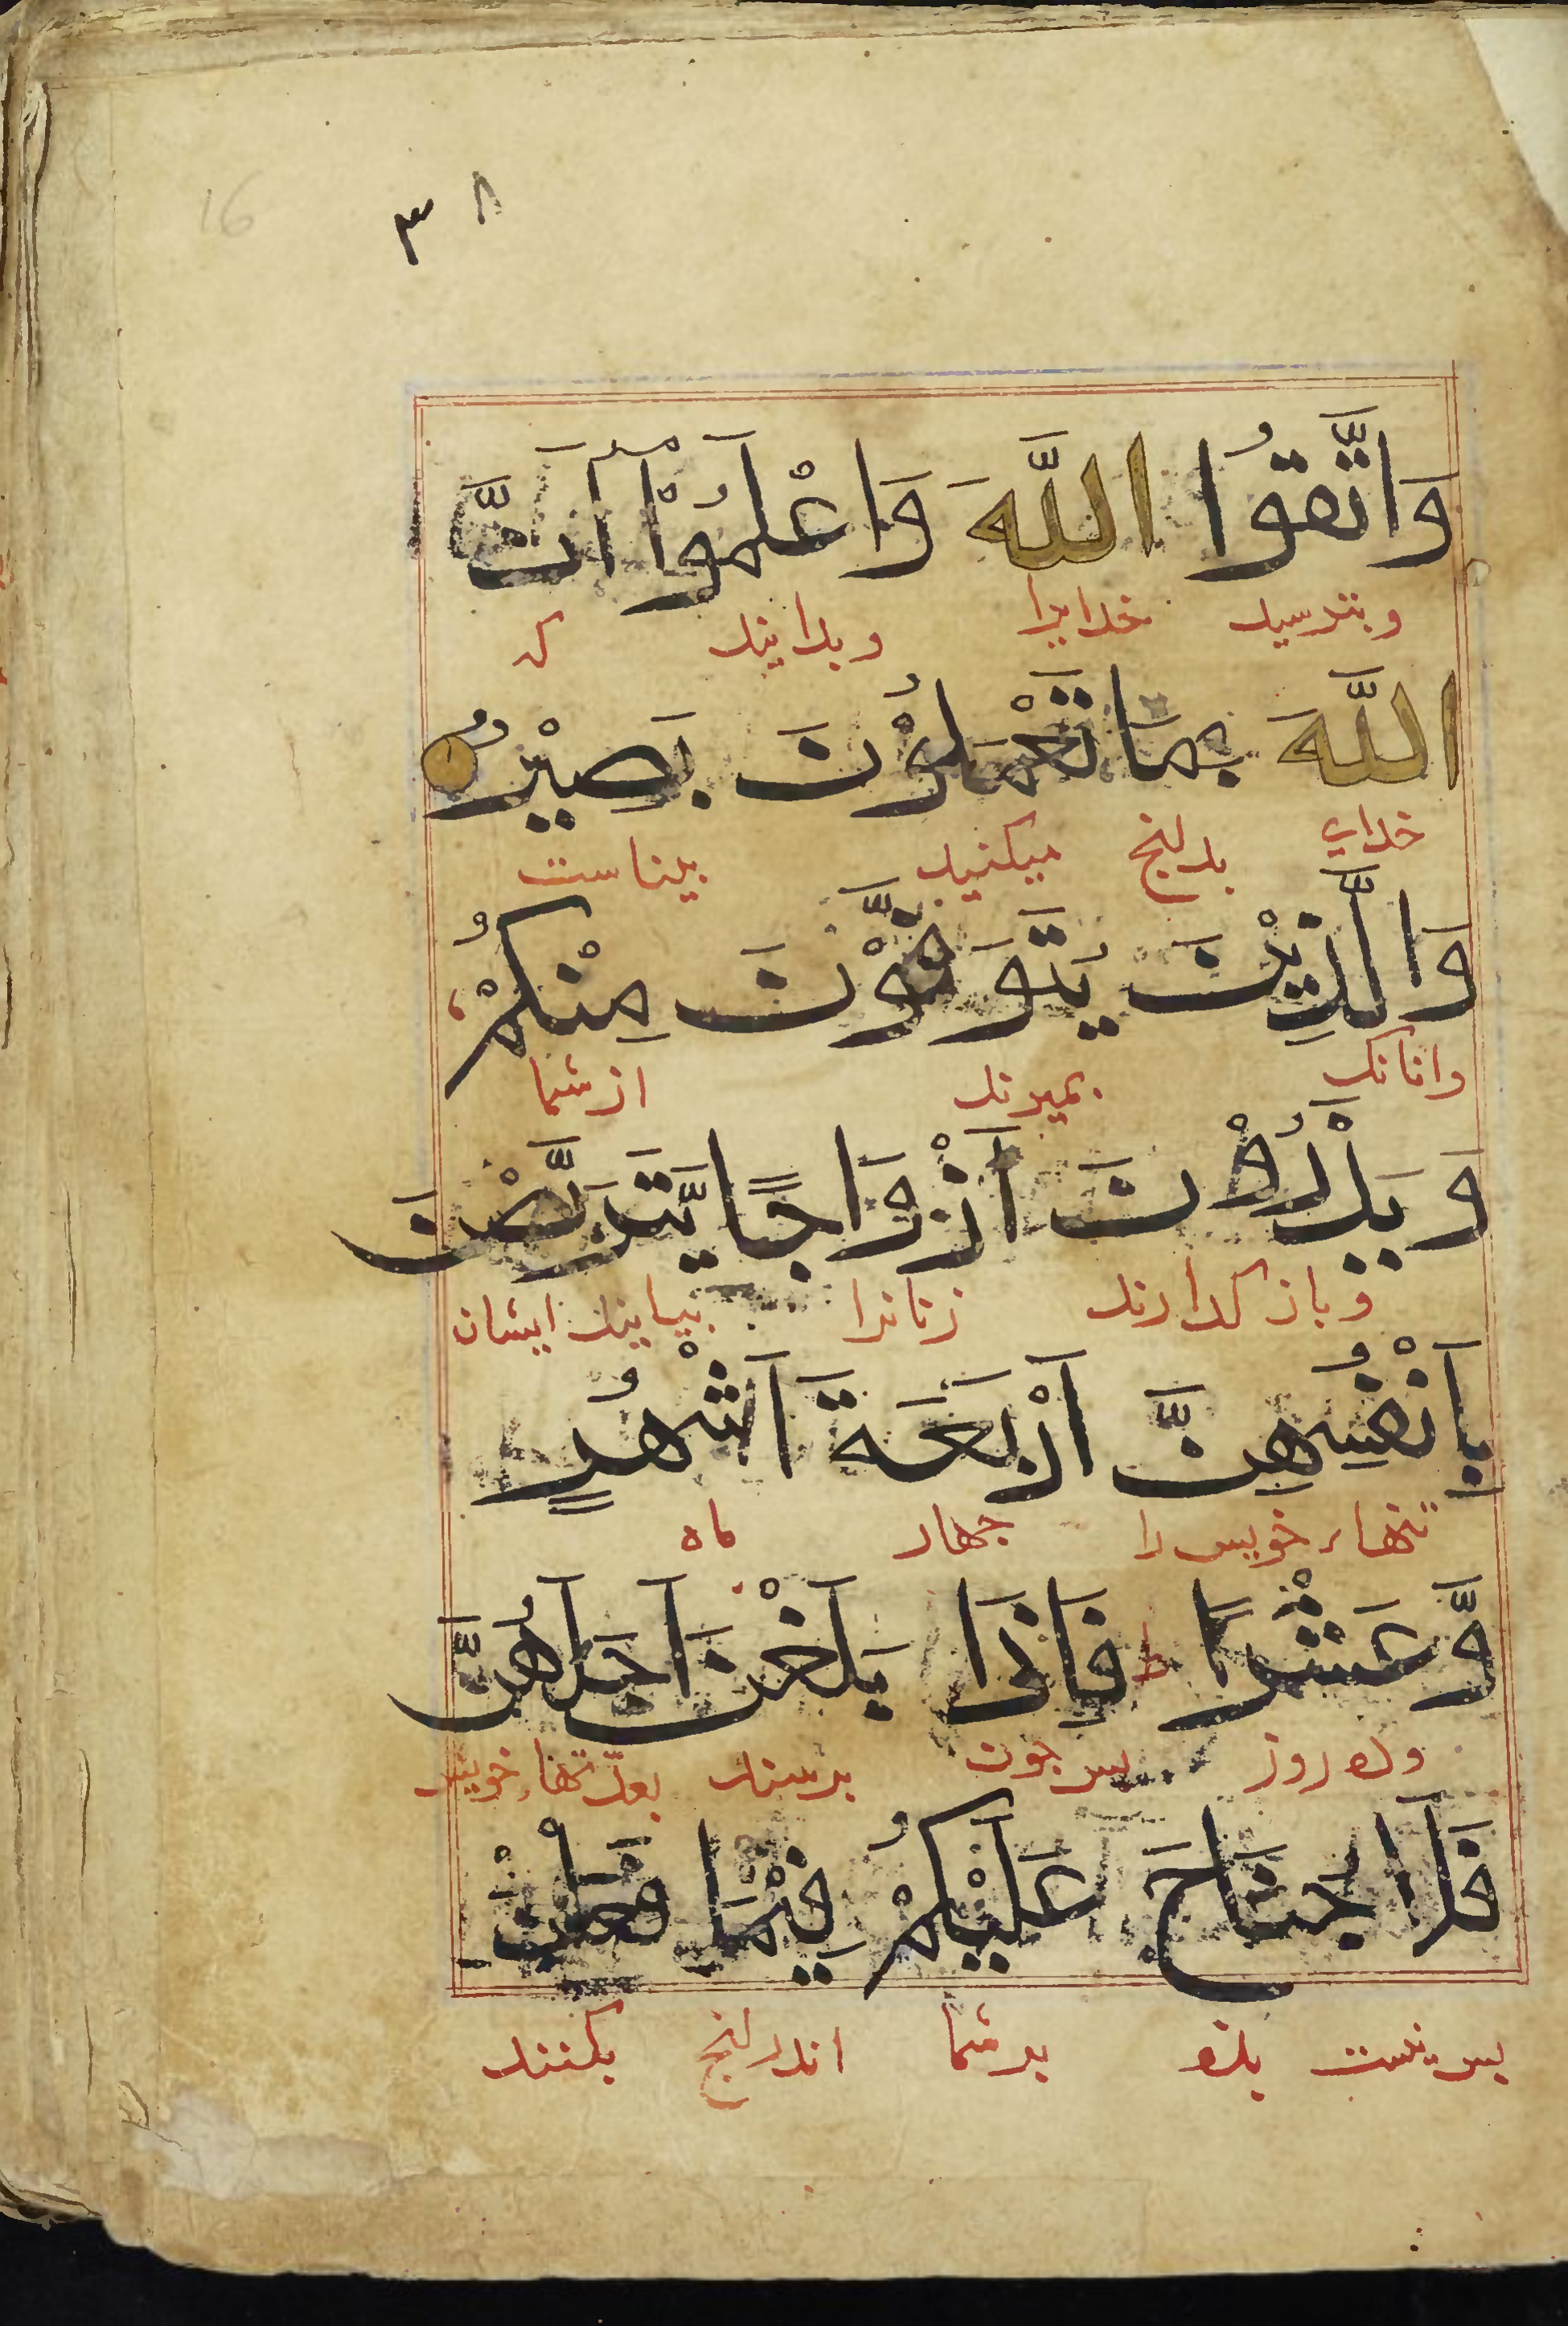 16
٣٨
وَاتَّقُوا اللَّهَ وَاعْلَمُوْا اَنَّ
وبترسید خدایرا وبدانید که
اللَّهَ بِمَا تَعْمَلُوْنَ بَصِيْرٌ
خدای بدانچ میکنید بیناست
وَالَّذِيْنَ يُتَوَفَّوْنَ مِنْكُمْ
وانانک بمیرند از شما
وَيَذَرُوْنَ اَزْوَاجًا يَّتَرَبَّصْنَ
وباز گذارند زنانرا بپایند ایشان
بِاَنْفُسِهِنَّ اَرْبَعَةَ اَشْهُرٍ
تنهاء خویش را چهار ماه
وَّعَشْرًا ط فَاِذَا بَلَغْنَ اَجَلَهُنَّ
وده روز پس چون برسند بعدتهاء خویش
فَلَا جُنَاحَ عَلَيْكُمْ فِيْمَا فَعَلْنَ
پس نیست بزه بر شما اندرانچ بکنند